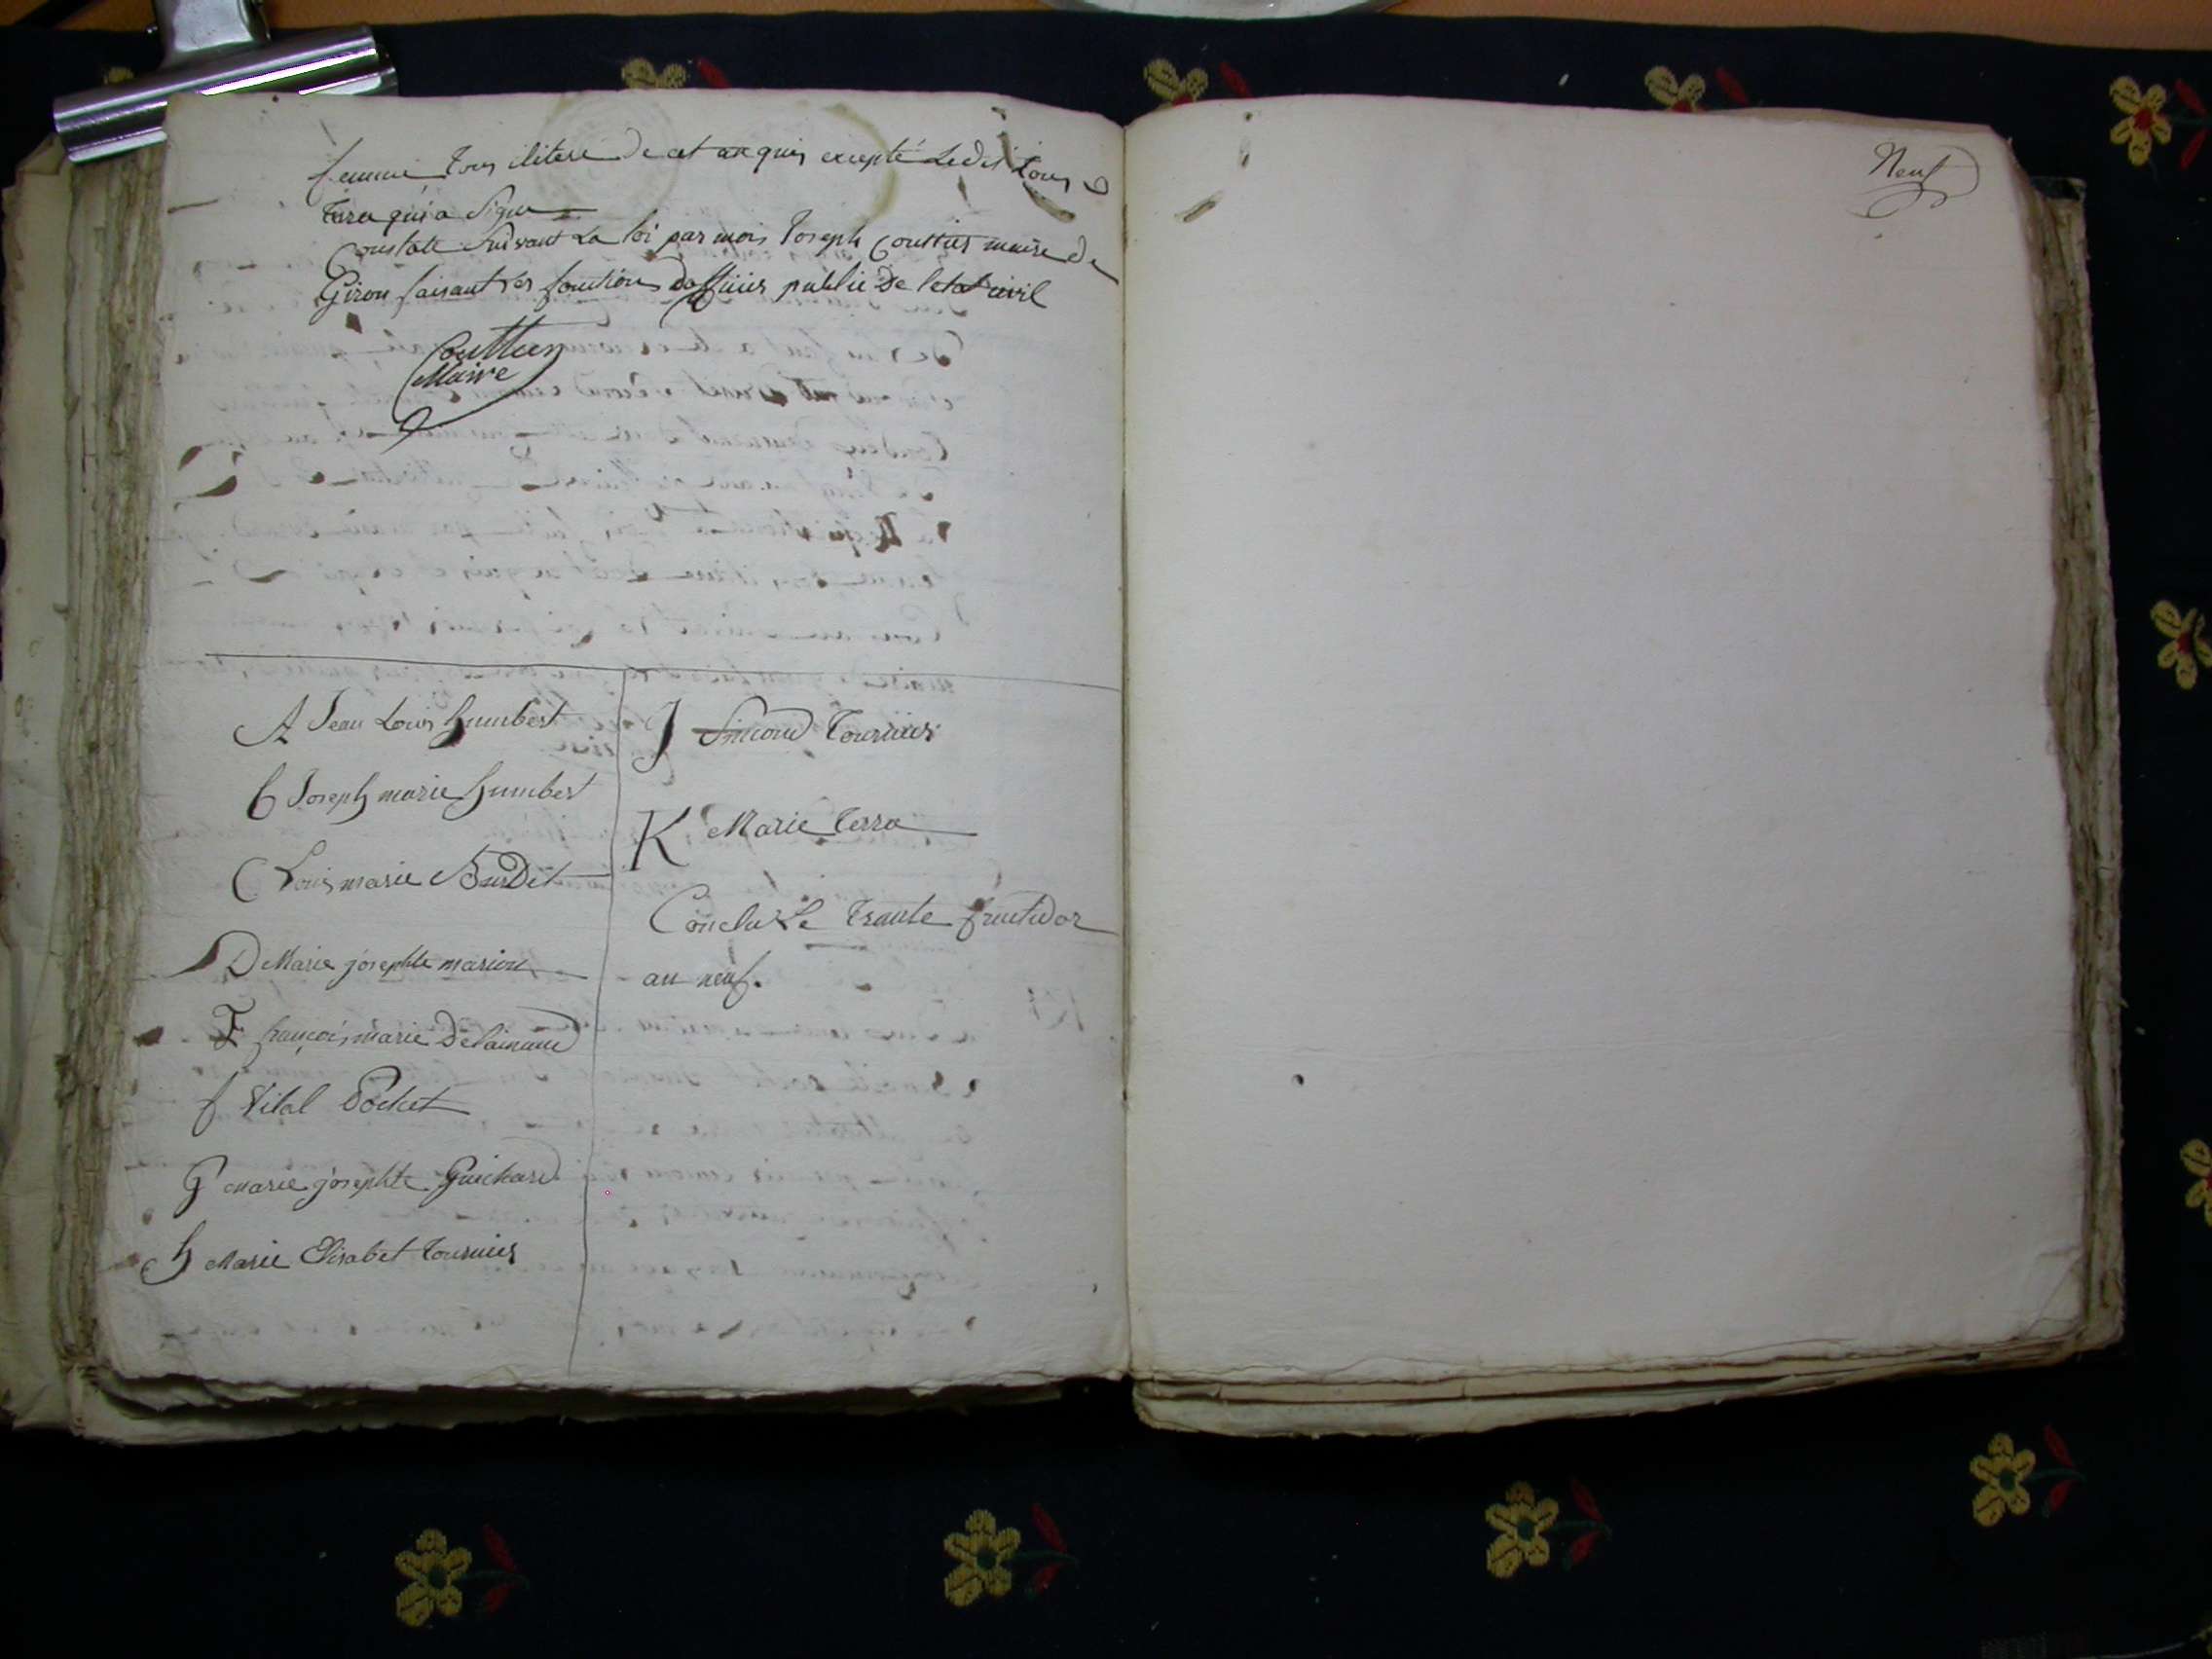 femme, tous iliteré de cet en quis excepté ledit Louis
Tura qui a signé
Constaté suivant La loi par mois Joseph Couttier maire de
Giron faisant les fonction dofficier public De letat civil
Couttier
Maire
A Jean Louis humbert
b Joseph marie humbert
C Louis marie Burdet
D Marie josephte marion
F françois marie
f Vital Pochet
G marie josephte Guichard
h Marie Elisabet Tournier
J Simeond Tournier
K Marie Terra
Conclu Le Trante fructidor
an neuf.
Neuf